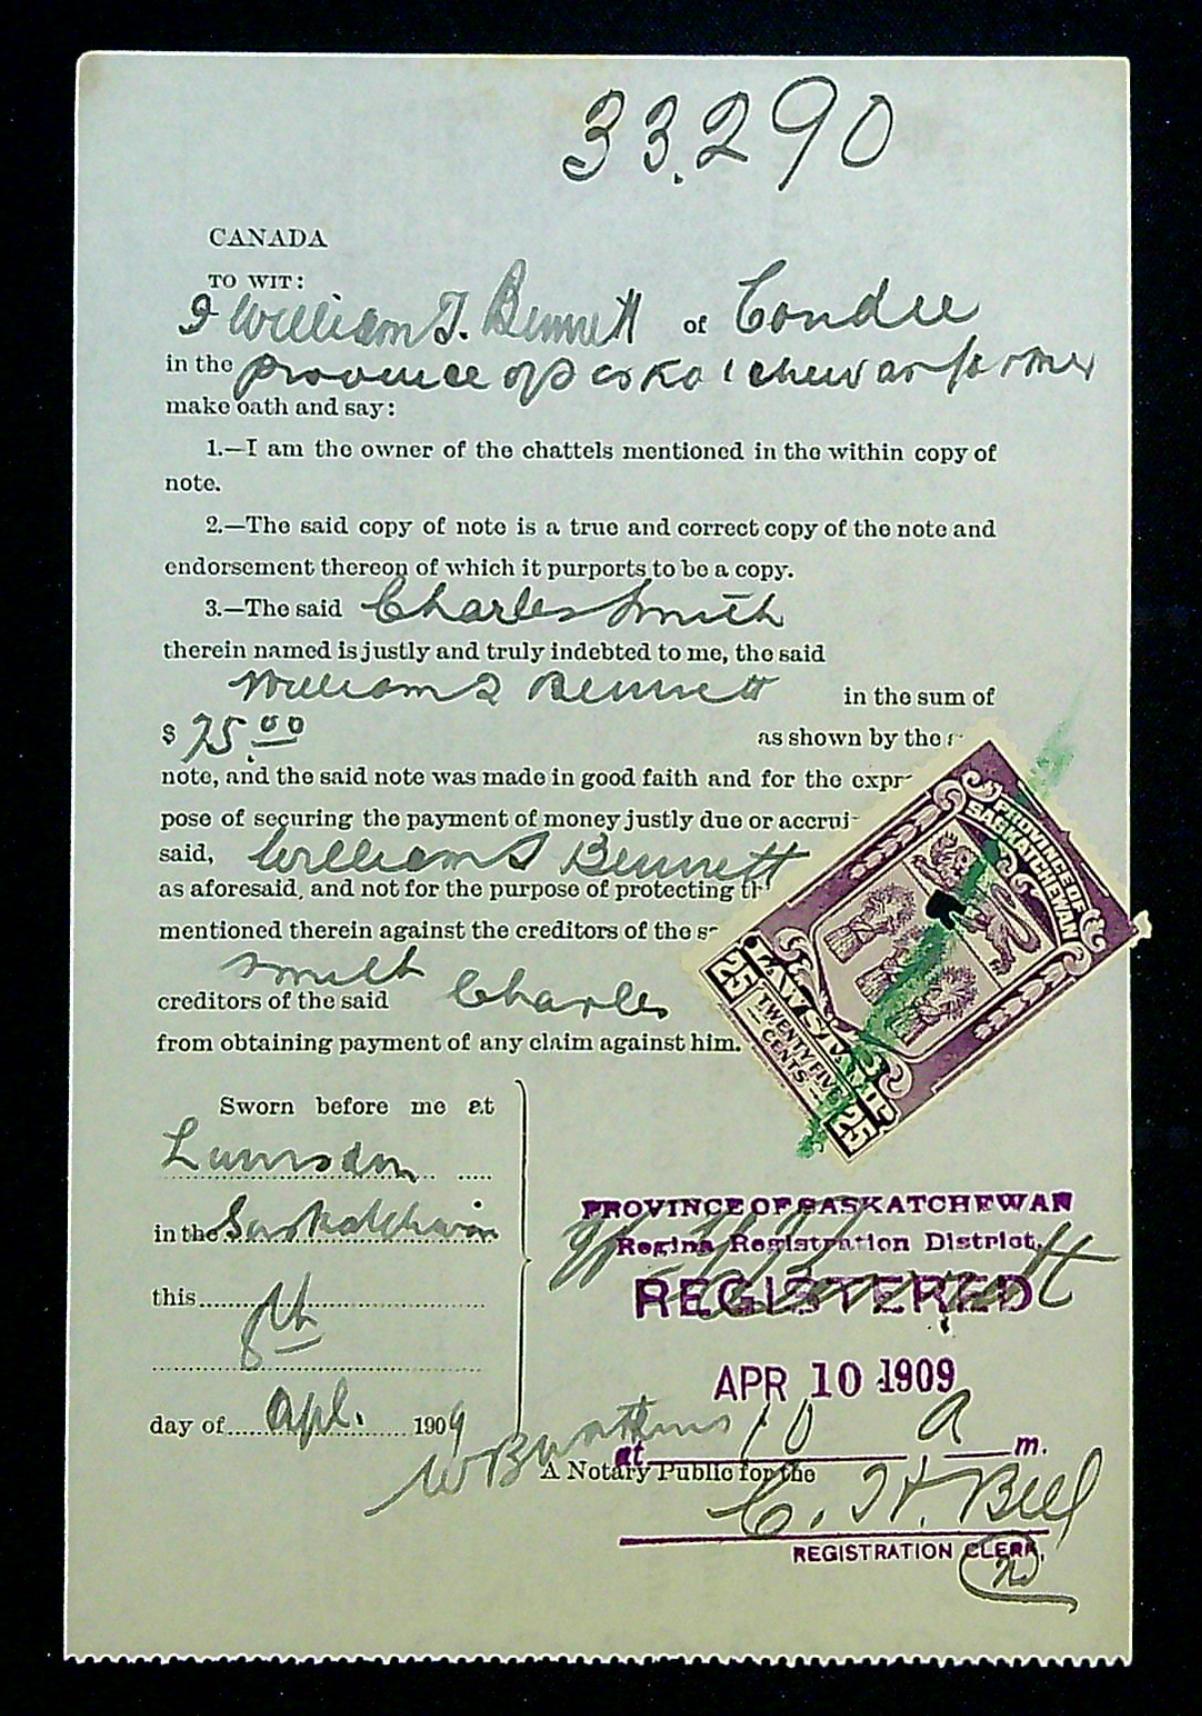 33290
CANADA
TO WIT:
I William J. Bennett of Condie
in the province of Saskatchewan farmer
make oath and say:
1.—I am the owner of the chattels mentioned in the within copy of
note.
2.—The said copy of note is a true and correct copy of the note and
endorsement thereon of which it purports to be a copy.
3.—The said Charles Smith
therein named is justly and truly indebted to me, the said
William J Bennett in the sum of
$ 75.00 as shown by the
note, and the said note was made in good faith and for the expr
pose of securing the payment of money justly due or accrui
said, William J Bennett
as aforesaid, and not for the purpose of protecting th
mentioned therein against the creditors of the s
Smith Charles
creditors of the said
from obtaining payment of any claim against him.
PROVINCE OF
SASKATCHEWAN
LAW STAMP
25 TWENTY FIVE CENTS 25
Sworn before me at
Lumsden
in the Saskatchewan
this 8th
day of Apl. 1909
PROVINCE OF SASKATCHEWAN
Regina Registration District.
REGISTERED
Bennett
APR 10 1909
at 10 A m.
A Notary Public for the
C. H. Bell
REGISTRATION CLERK.